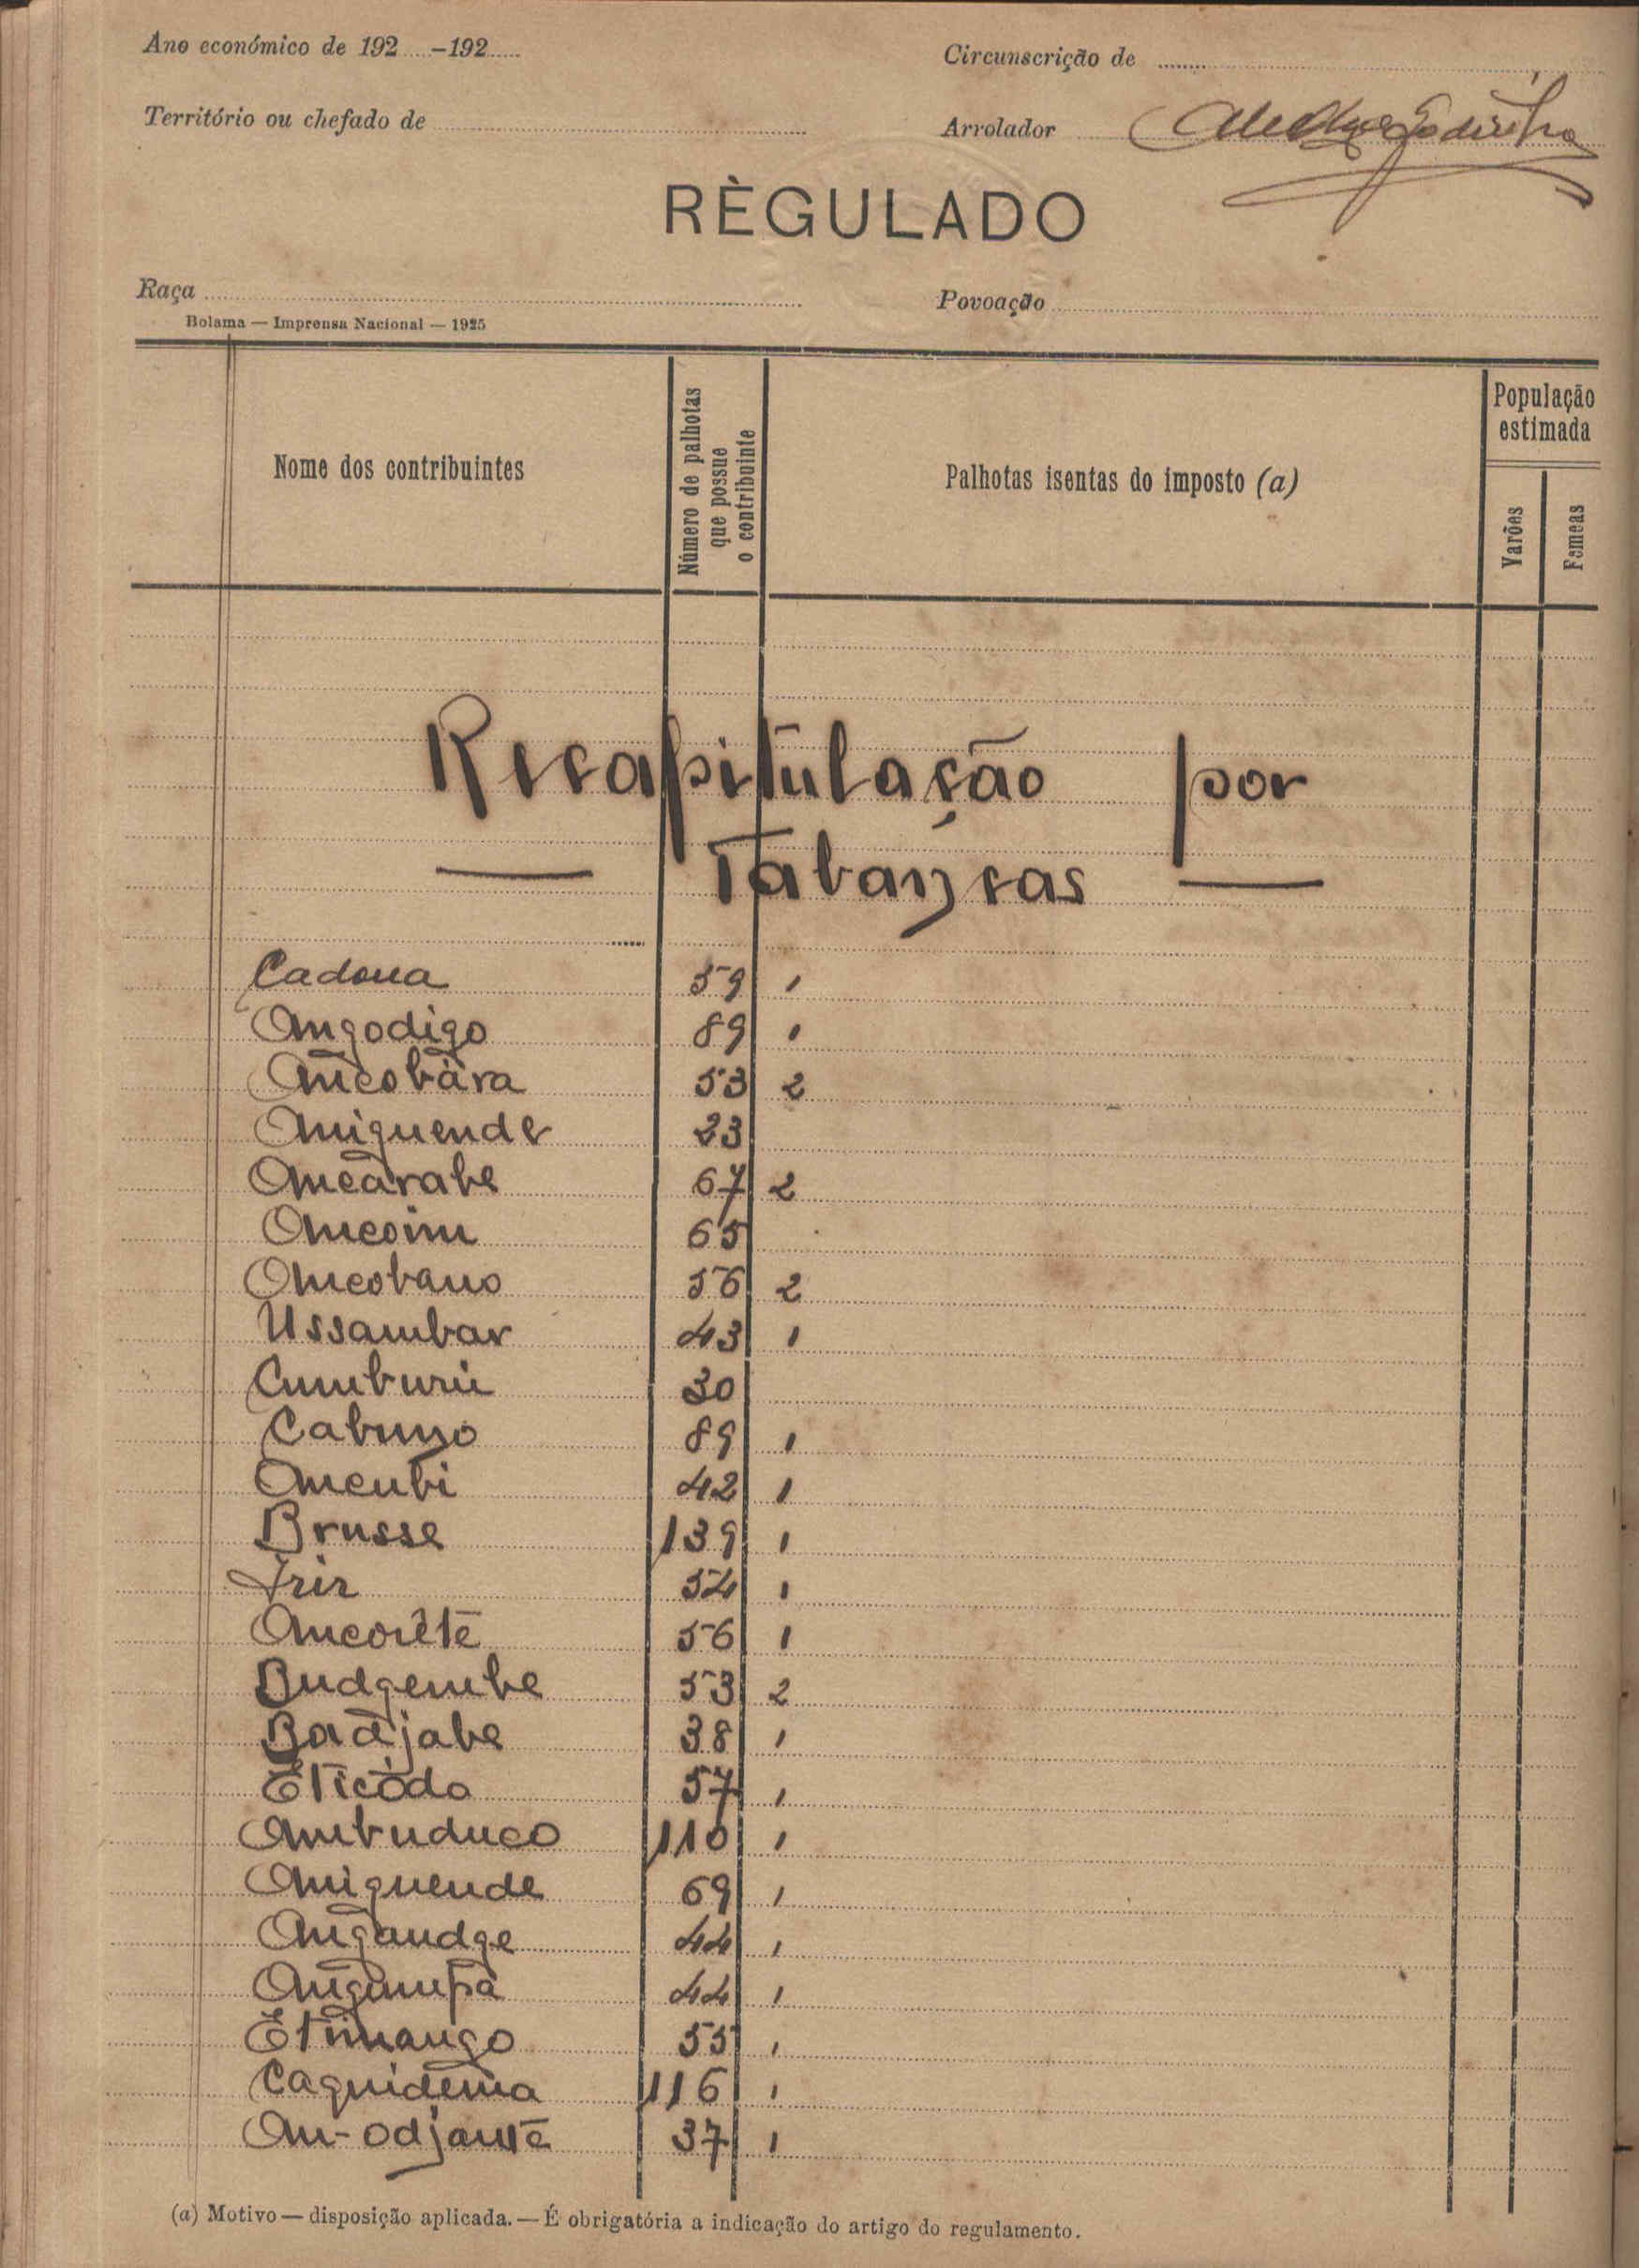 Ano económico de 192.....-192.....
Circunscrição de
Território ou chefado de
Arrolador
RÈGULADO
Raça
Povoação
Bolama — Imprensa Nacional — 1925
Nome dos contribuintes
Número de palhotas que possue o contribuinte
Palhotas isentas do imposto (a)
População estimada
Varões
Femeas
Recapitulação por
— Tabancas —
Cadona 59 1
Angodigo 89 1
Ancobára 53 2
Aniguende 23
Ancarabe 67 2
Ancoim 65
Ancobano 56 2
Ussambar 43 1
Cumburiu 30
Cabuno 89 1
Ancubi 42 1
Brusse 139 1
54 1
Ancorête 56 1
Budgembe 53 2
38 1
Eticódo 57 1
Ambuduco 110 1
Aniguende 69 1
Angandge 44 1
Angumpa 44 1
Etimango 55 1
Caquidema 116 1
An-odjante 37 1
(a) Motivo — disposição aplicada. — É obrigatória a indicação do artigo do regulamento.